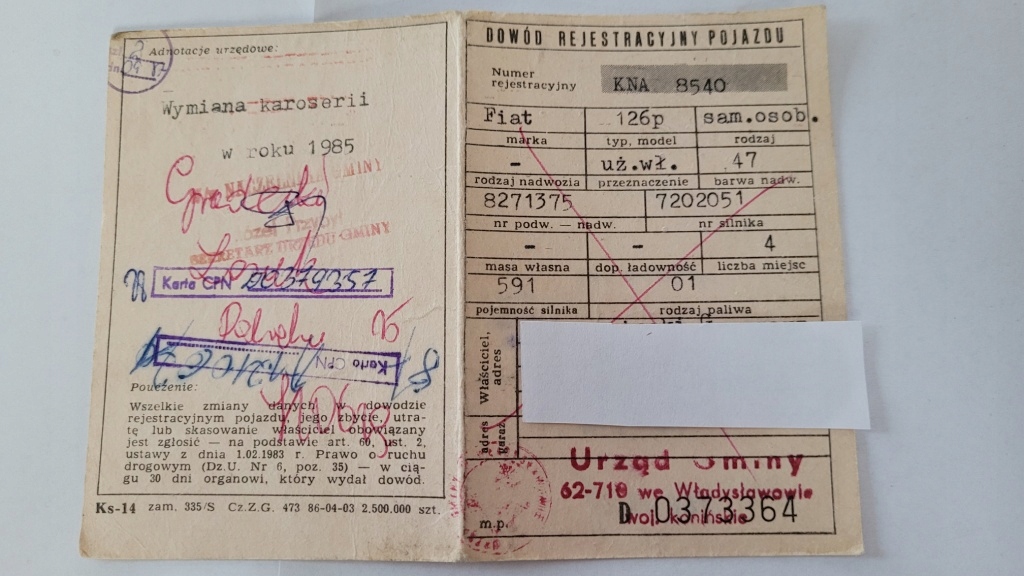 Adnotacje urzędowe:
Wymiana karoserii
w roku 1985
NACZELNIK GMINY
SEKRETARZ URZĘDU GMINY
Karta CPN 00379357
Karta CPN
Pouczenie:
Wszelkie zmiany danych w dowodzie
rejestracyjnym pojazdu, jego zbycie, utra-
tę lub skasowanie właściciel obowiązany
jest zgłosić — na podstawie art. 60, ust. 2,
ustawy z dnia 1.02.1983 r. Prawo o ruchu
drogowym (Dz.U. Nr 6, poz. 35) — w cią-
gu 30 dni organowi, który wydał dowód.
Ks-14 zam. 335/S Cz.Z.G. 473 86-04-03 2.500.000 szt.
DOWÓD REJESTRACYJNY POJAZDU
Numer
rejestracyjny KNA 8540
Fiat 126p sam.osob.
marka typ, model rodzaj
- uż.wł. 47
rodzaj nadwozia przeznaczenie barwa nadw.
8271375 7202051
nr podw. — nadw. nr silnika
- - 4
masa własna dop. ładowność liczba miejsc
591 01
pojemność silnika rodzaj paliwa
Właściciel,
adres
adres
garaż.
Urząd Gminy
62-710 we Władysławowie
woj. konińskie
D 0373364
m.p.